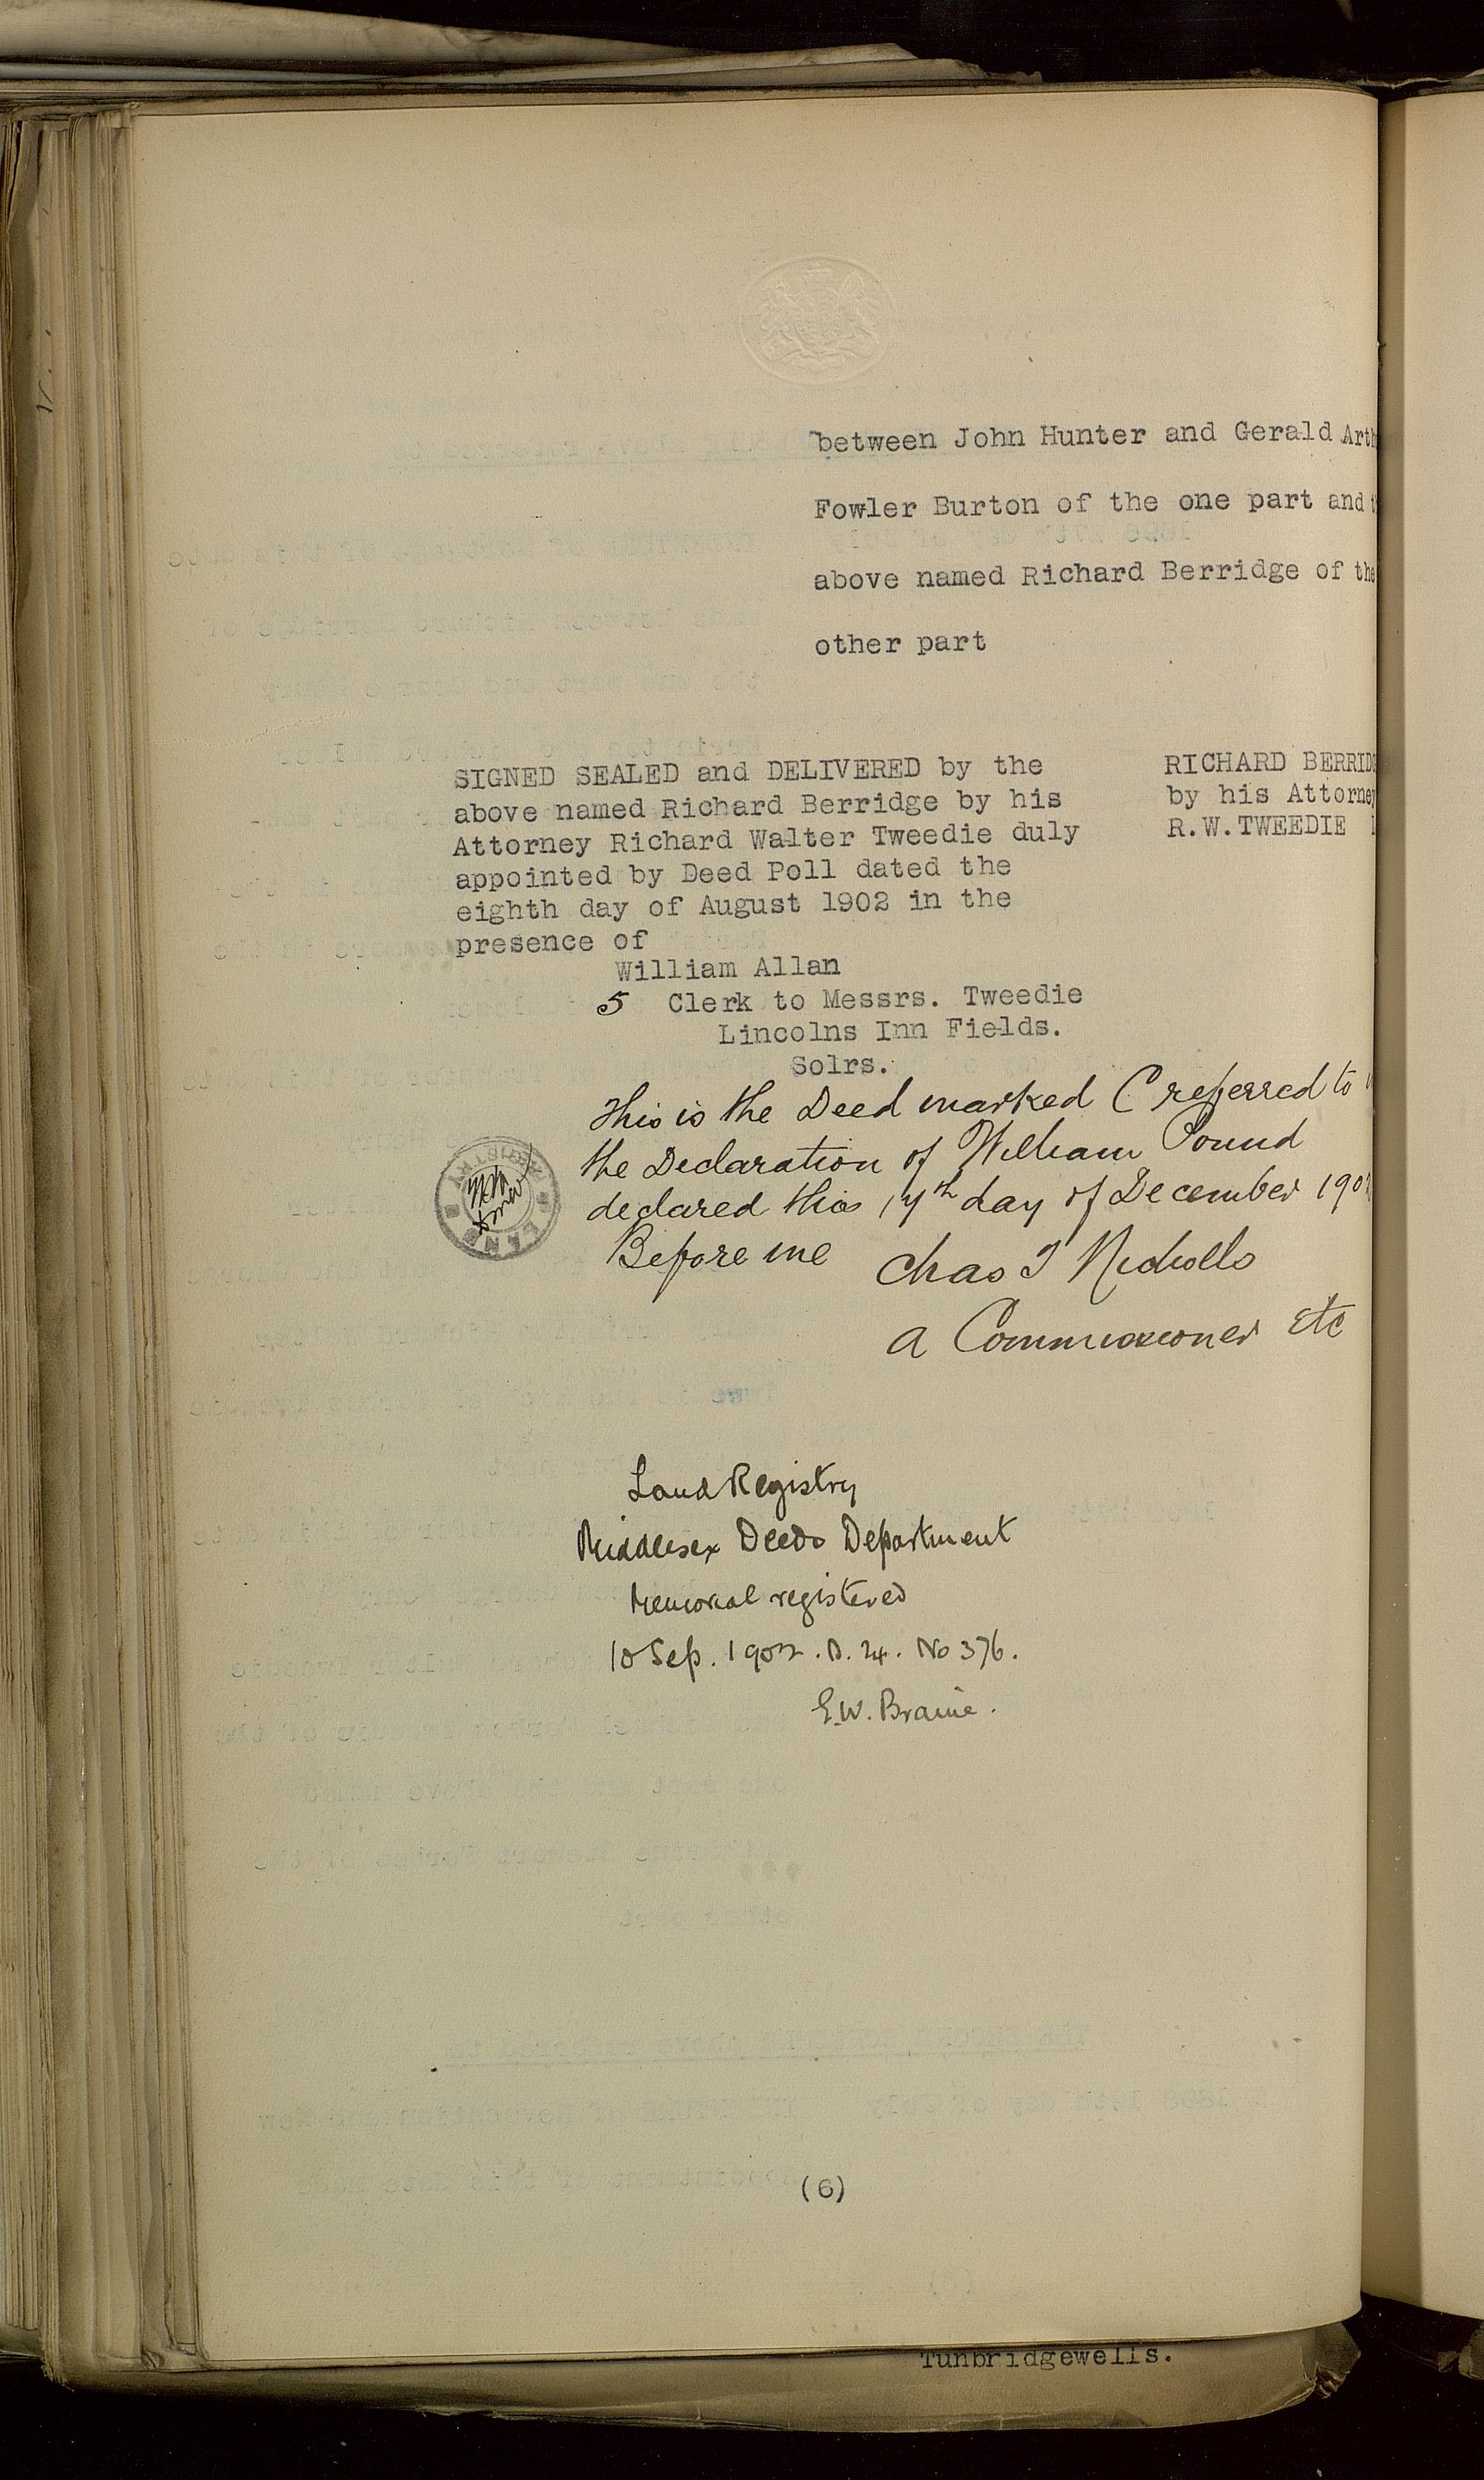 between John Hunter and Gerald Art
Fowler Burton of the one part and t
above named Richard Berridge of the
other part
SIGNED SEALED and DELIVERED by the
above named Richard Berridge by his
Attorney Richard Walter Tweedie duly
appointed by Deed Poll dated the
eighth day of August 1902 in the
presence of
RICHARD BERRID
by his Attorney
R.W.TWEEDIE
William Allan
5 Clerk to Messrs. Tweedie
Lincolns Inn Fields.
Solrs.
This is the Deed marked C referred to
the Declaration of William Pound
declared this 17th day of December 190
Before me Chas T Nicholls
a Commissioner Etc
Land Registry
Middlesex Deeds Department
Memorial registered
10 Sep. 1902. B. 24. No 376.
E.W. Braine.
(6)
Tunbridgewells.